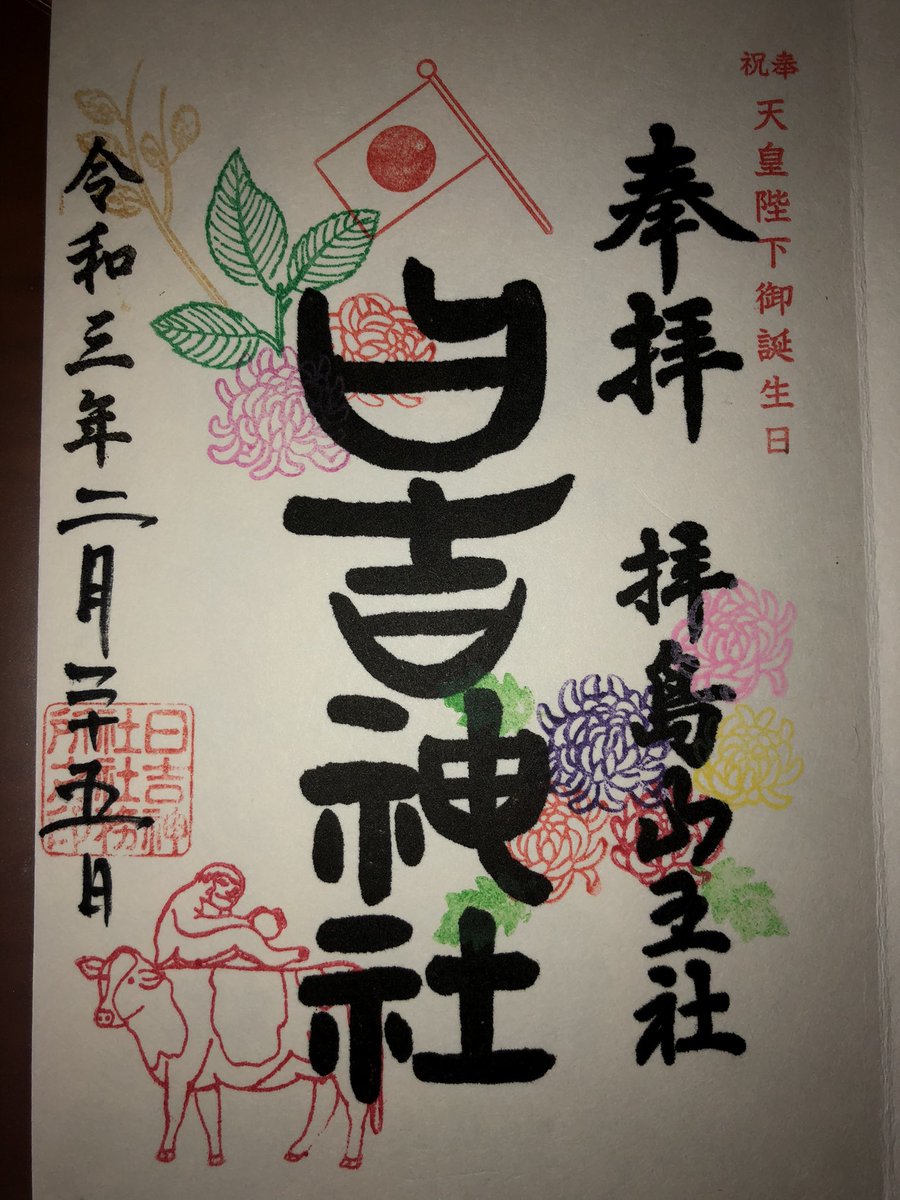 奉祝
天皇陛下御誕生日
奉拝
拝島山王社
日吉神社
令和三年二月二十五日
日吉神
社社務
所之印